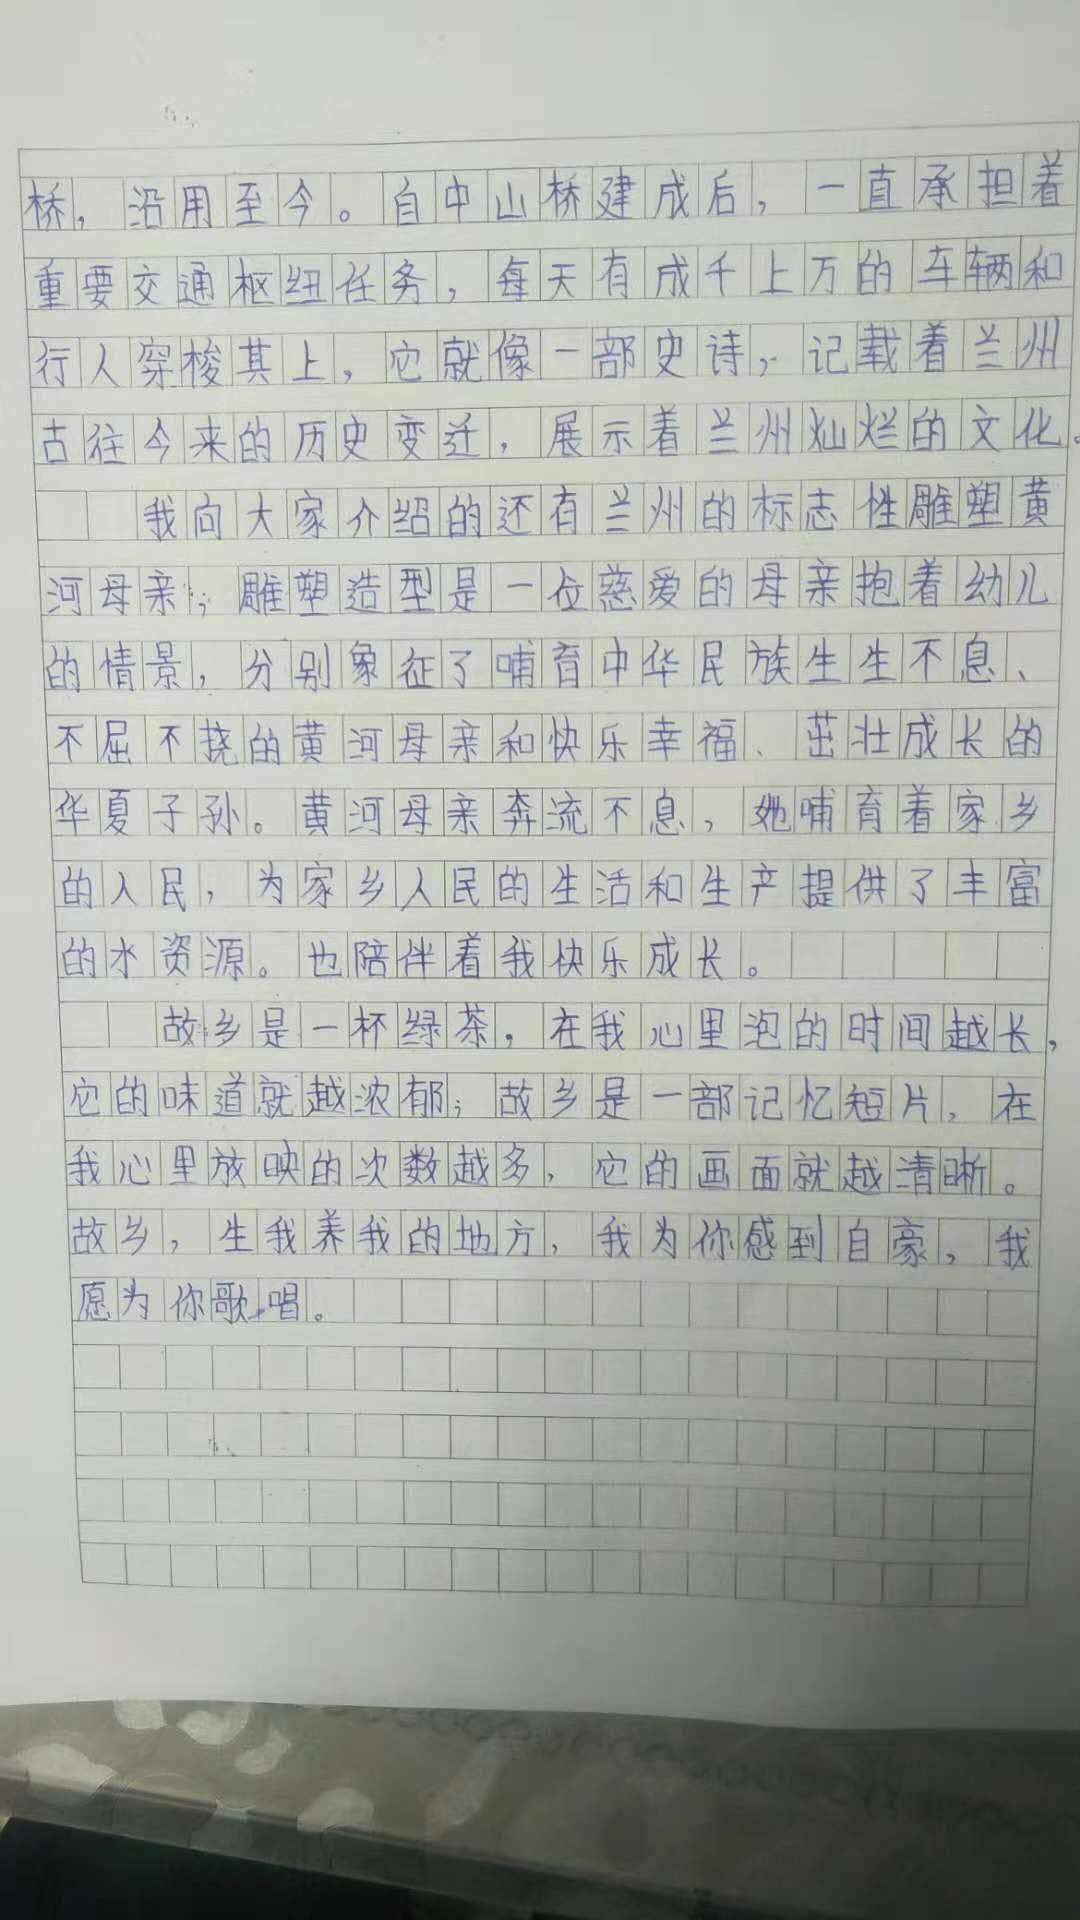 桥，沿用至今。自中山桥建成后，一直承担着
重要交通枢纽任务，每天有成千上万的车辆和
行人穿梭其上，它就像一部史诗，记载着兰州
古往今来的历史变迁，展示着兰州灿烂的文化。
我向大家介绍的还有兰州的标志性雕塑黄
河母亲；雕塑造型是一位慈爱的母亲抱着幼儿
的情景，分别象征了哺育中华民族生生不息、
不屈不挠的黄河母亲和快乐幸福、茁壮成长的
华夏子孙。黄河母亲奔流不息，她哺育着家乡
的人民，为家乡人民的生活和生产提供了丰富
的水资源。也陪伴着我快乐成长。
故乡是一杯绿茶，在我心里泡的时间越长，
它的味道就越浓郁；故乡是一部记忆短片，在
我心里放映的次数越多，它的画面就越清晰。
故乡，生我养我的地方，我为你感到自豪，我
愿为你歌唱。